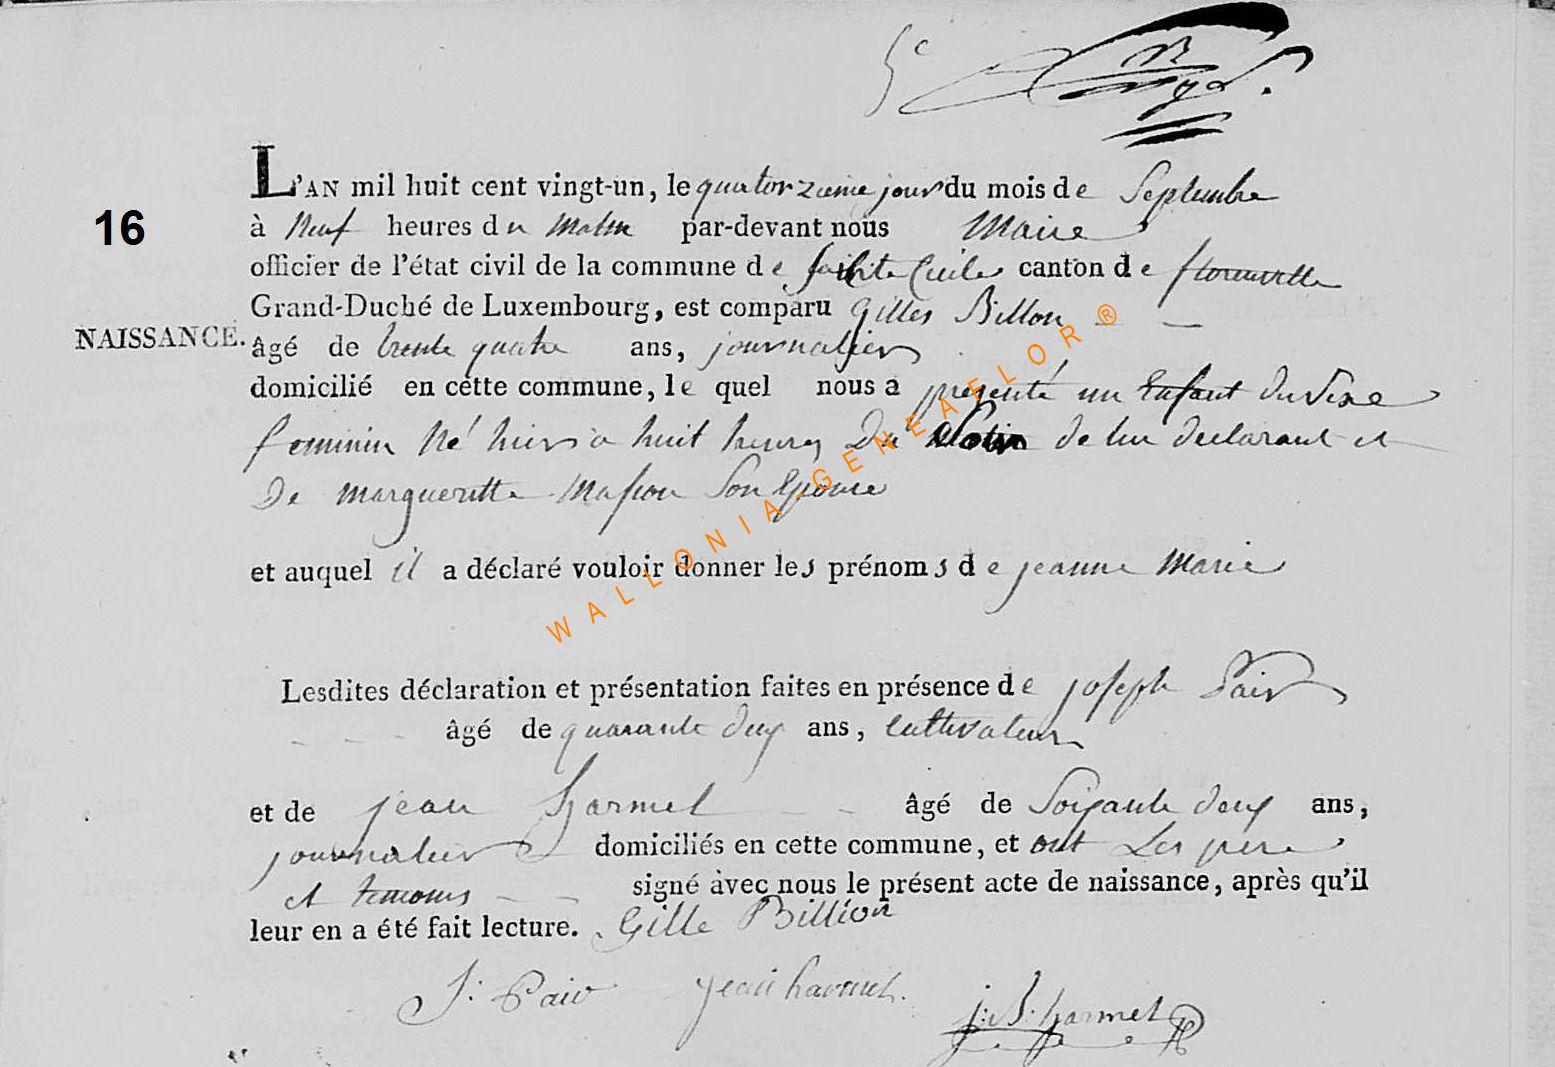 5e
L'AN mil huit cent vingt-un, le quatorzieme jour du mois de Septembre
16
à Neuf heures du Matin par-devant nous Maire
officier de l'état civil de la commune de Cecile canton de florenville
Grand-Duché de Luxembourg, est comparu Gilles Billon
NAISSANCE.
âgé de trente quatre ans, journalier
domicilié en cette commune, le quel nous a presenté un Enfant du Sexe
feminin Né hier a huit heures Du de lui declarant et
De margueritte Masson Son Epouse
et auquel il a déclaré vouloir donner les prénoms de jeanne Marie
WALLONIA-GENEAFLOR®
Lesdites déclaration et présentation faites en présence de joseph Pair
âgé de quarante deux ans, cultivateur
et de jean harmel âgé de Soixante deux ans,
journalier domiciliés en cette commune, et ont Les pere
et temoins signé avec nous le présent acte de naissance, après qu'il
leur en a été fait lecture. Gille Billion
J: Pair jean harmel.
j:B: harmel